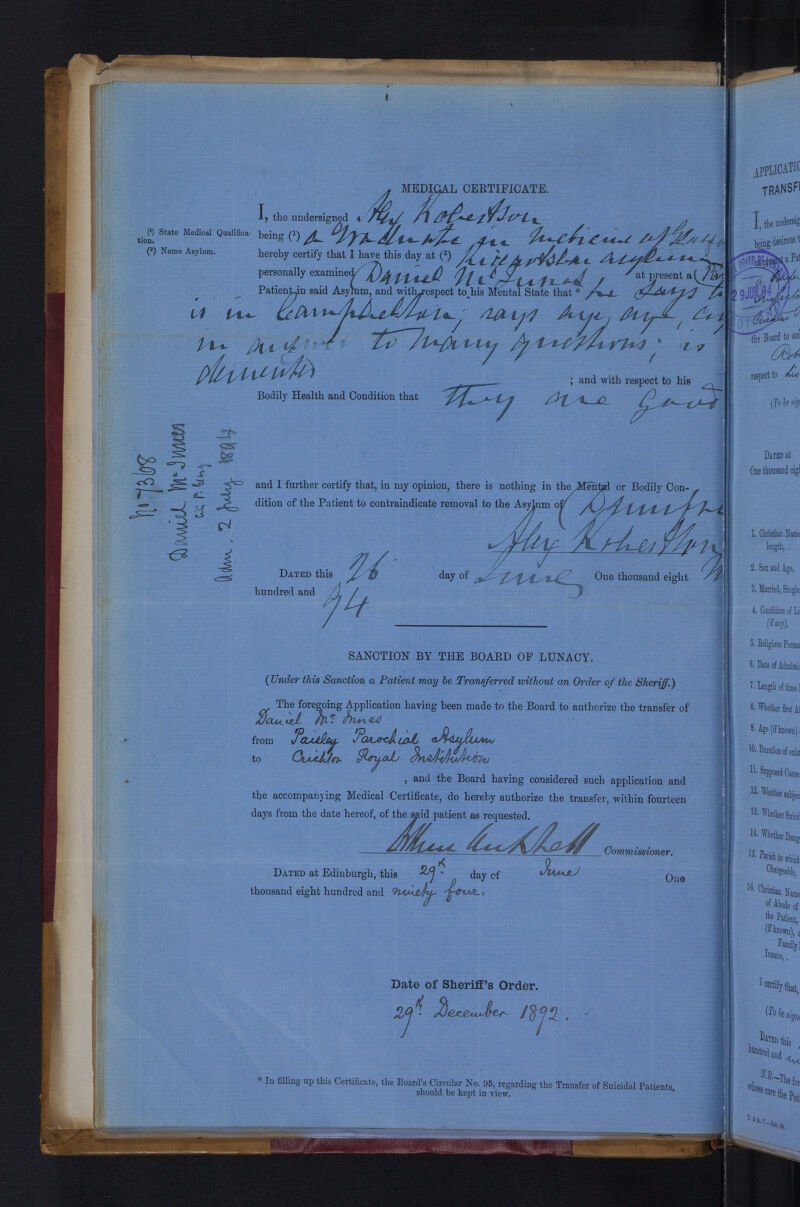 MEDICAL CERTIFICATE.
I, the undersigned Alex Robertson
(1) State Medical Qualifica-
tion.
(2) Name Asylum.
being (1) a Graduate in Medicine of
hereby certify that I have this day at (2) Asylum
personally examined Daniel McInnes at present a
Patient in said Asylum, and with respect to his Mental State that * he says
is in Campbeltown; says aye, aye,
in answer to many questions; is
demented
; and with respect to his
Bodily Health and Condition that they are good
No 7368
Daniel McInnes
Adm. 2 July 1894
and I further certify that, in my opinion, there is nothing in the Mental or Bodily Con-
dition of the Patient to contraindicate removal to the Asylum of
Alex Robertson
DATED this 26 day of June One thousand eight
hundred and 94
SANCTION BY THE BOARD OF LUNACY.
(Under this Sanction a Patient may be Transferred without an Order of the Sheriff.)
The foregoing Application having been made to the Board to authorize the transfer of
Daniel Mc Innes
from Paisley Parochial Asylum
to Crichton Royal Institution
, and the Board having considered such application and
the accompanying Medical Certificate, do hereby authorize the transfer, within fourteen
days from the date hereof, of the said patient as requested.
Commissioner.
DATED at Edinburgh, this 29th day of June One
thousand eight hundred and ninety four.
Date of Sheriff's Order.
29th December 1892.
* In filling up this Certificate, the Board's Circular No. 95, regarding the Transfer of Suicidal Patients,
should be kept in view.
APPLICATIO
TRANSF
I, the undersig
being desirous
a Pat
29 JUN 94
the Board to
respect to his
(To be sig
DATED at
One thousand eig
1. Christian Name
length, .
2. Sex and Age,
3. Married, Single
4. Condition of Li
(if any),
5. Religious Persua
6. Date of Admissi
7. Length of time
8. Whether first At
9. Age (if known)
10. Duration of exist
11. Supposed Cause
12. Whether subjec
13. Whether Suicid
14. Whether Dang
15. Parish to which
Chargeable,
16. Christian Name
of Abode of
the Patient,
(if known),
Family
Insane, .
I certify that,
(To be signe
DATED this
hundred and
N.B.—The for
whose care the Pat